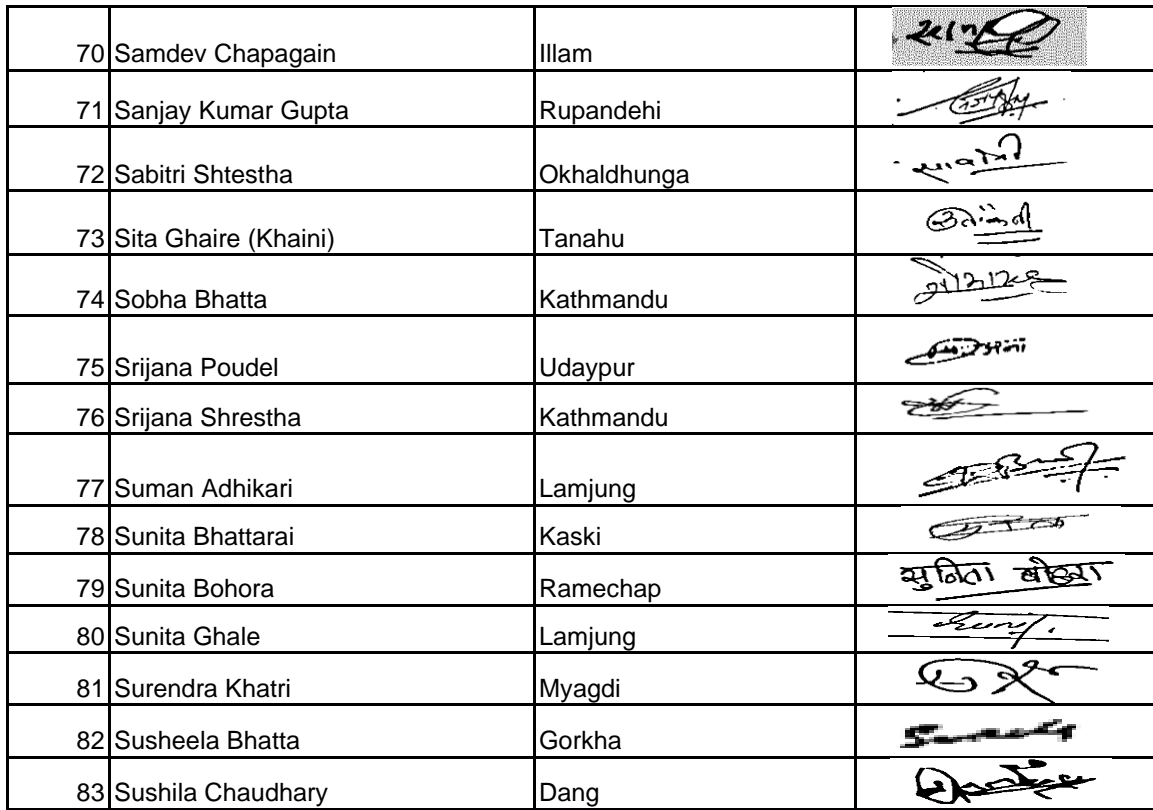 70 Samdev Chapagain Illam
71 Sanjay Kumar Gupta Rupandehi
72 Sabitri Shtestha Okhaldhunga
73 Sita Ghaire (Khaini) Tanahu
74 Sobha Bhatta Kathmandu
75 Srijana Poudel Udaypur
76 Srijana Shrestha Kathmandu
77 Suman Adhikari Lamjung
78 Sunita Bhattarai Kaski
79 Sunita Bohora Ramechap सुनिता बोहरा
80 Sunita Ghale Lamjung
81 Surendra Khatri Myagdi
82 Susheela Bhatta Gorkha
83 Sushila Chaudhary Dang